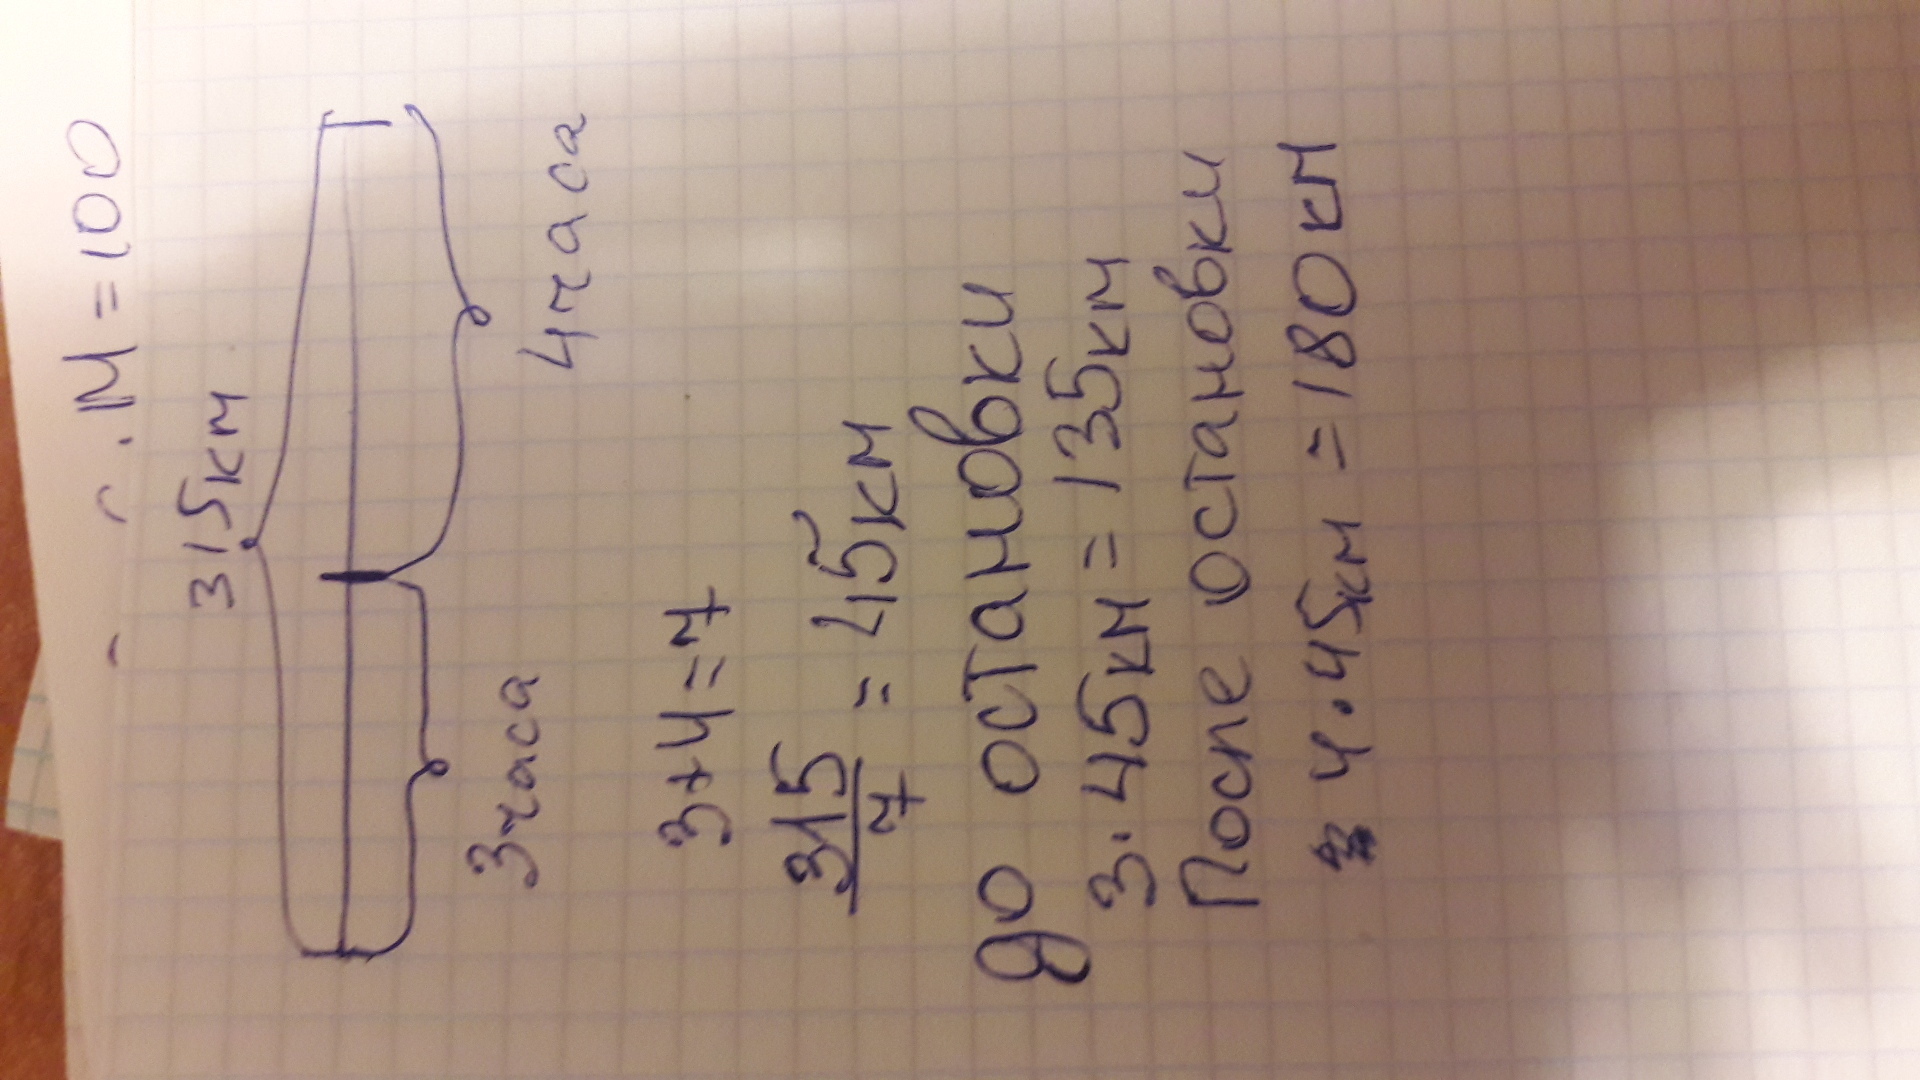 M = 100
315км
3часа 4часа
3+4=7
315/7 = 45км
до остановки
3·45км = 135км
После остановки
4·45км = 180км